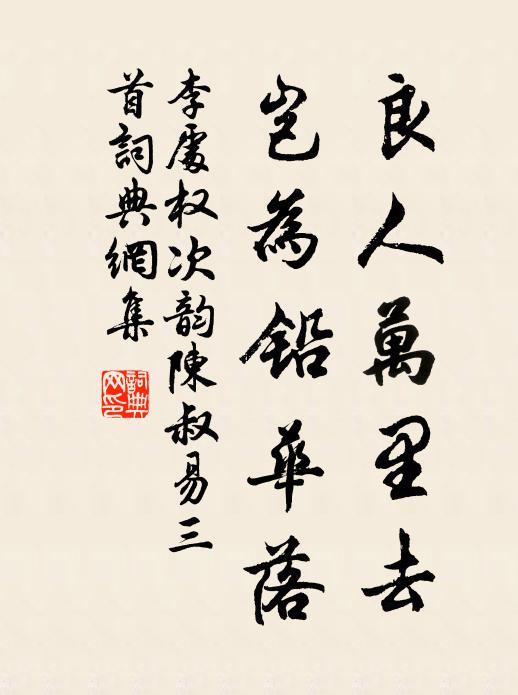 良人萬里去
岂為鉛華落
李處权次韵陳叔易三
首詞典網集
詞典
网印